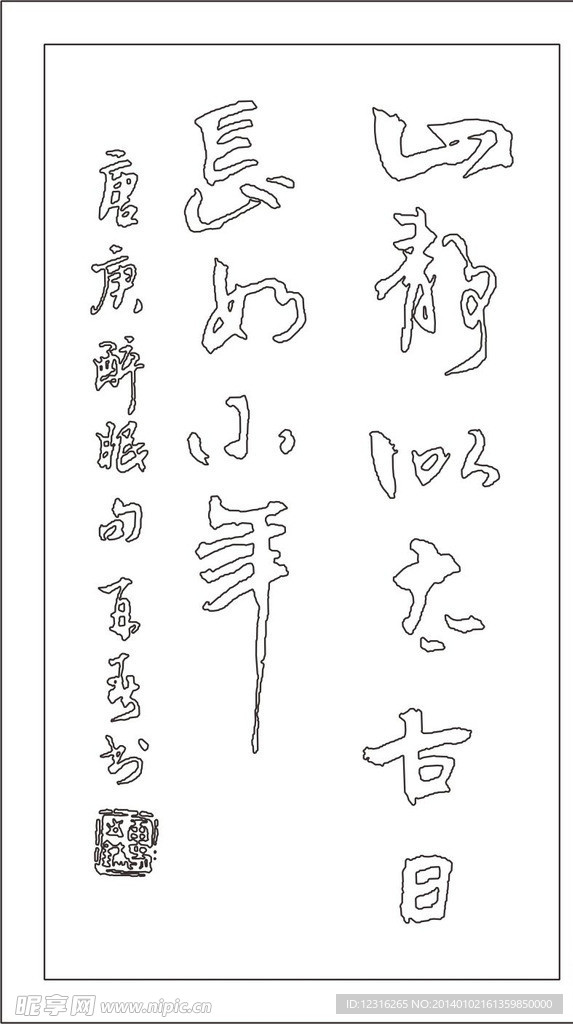 山静似太古日
長如小年
唐庚醉眠句书
昵享网 www.nipic.cn
ID:12316265 NO:20140102161359850000